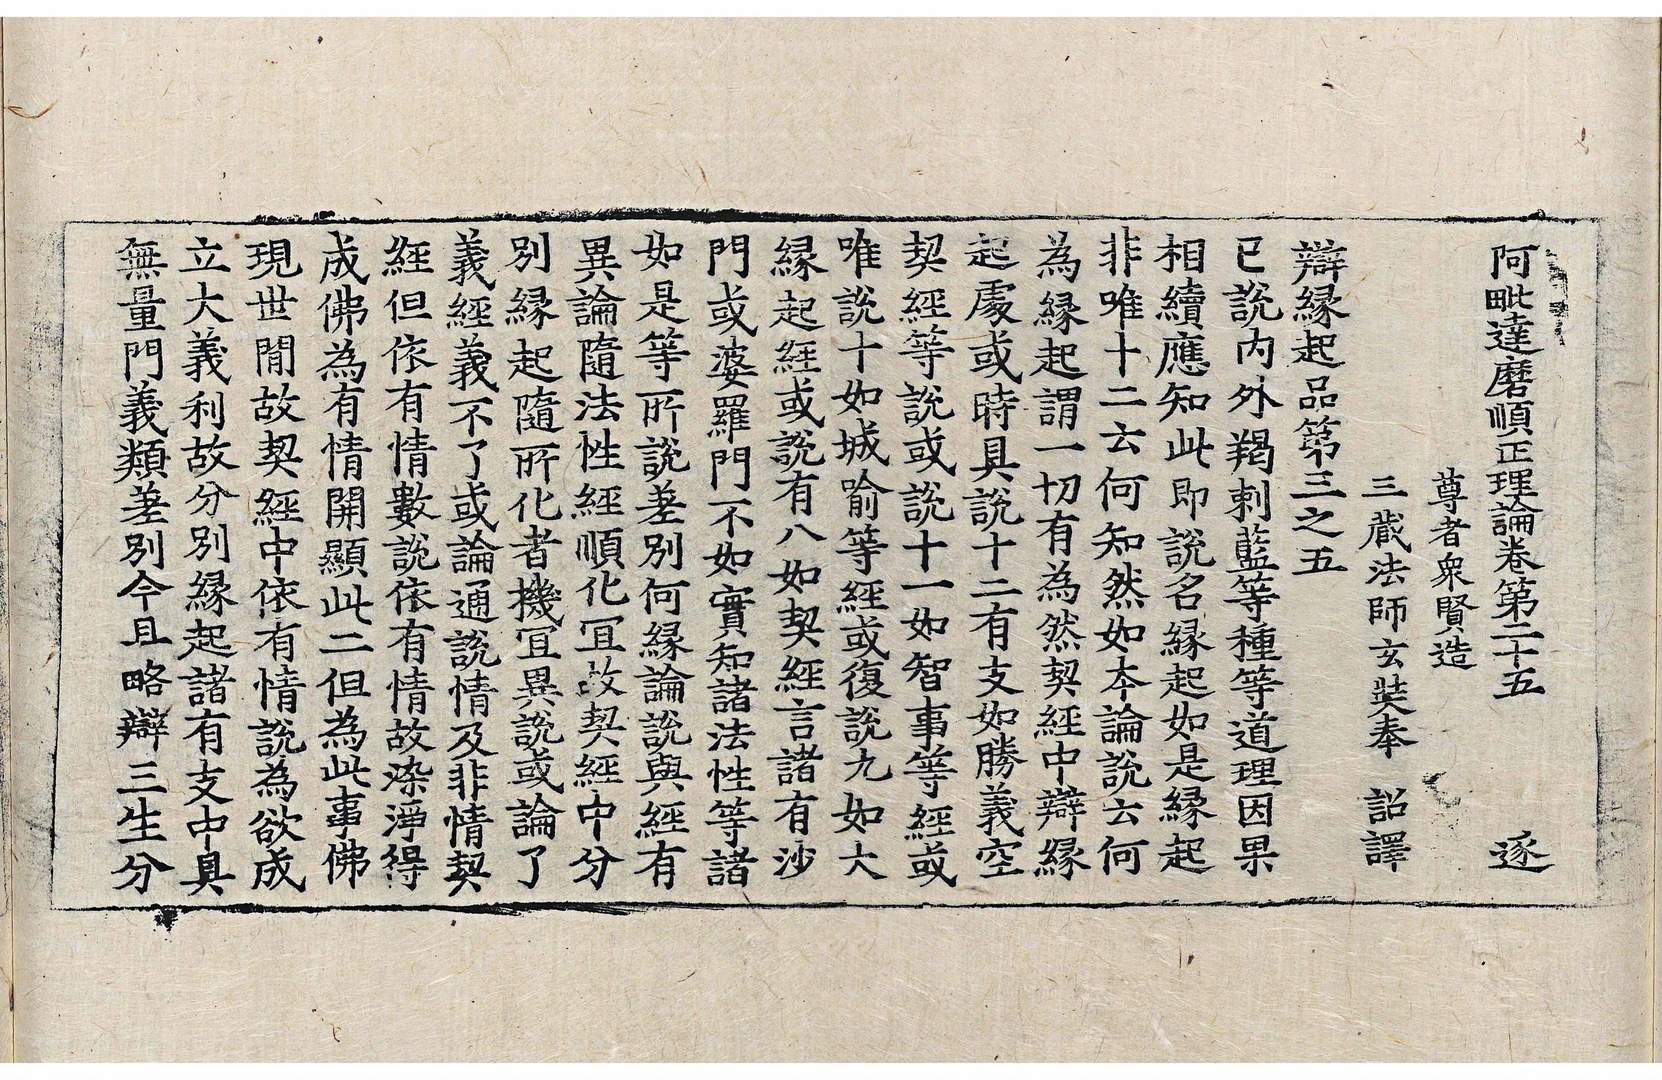 阿毗達磨順正理論卷第二十五 逐
尊者衆賢造
三藏法師玄奘奉 詔譯
辯緣起品第三之五
已說內外羯剌藍等種等道理因果
相續應知此即說名緣起如是緣起
非唯十二云何知然如本論說云何
為緣起謂一切有為然契經中辯緣
起處或時具說十二有支如勝義空
契經等說或說十一如智事等經或
唯說十如城喻等經或復說九如大
緣起經或說有八如契經言諸有沙
門或婆羅門不如實知諸法性等諸
如是等所說差別何緣論說與經有
異論隨法性經順化冝故契經中分
別緣起隨所化者機冝異說或論了
義經義不了或論通說情及非情契
經但依有情數說依有情故染淨得
成佛為有情開顯此二但為此事佛
現世閒故契經中依有情說為欲成
立大義利故分別緣起諸有支中具
無量門義類差別今且略辯三生分